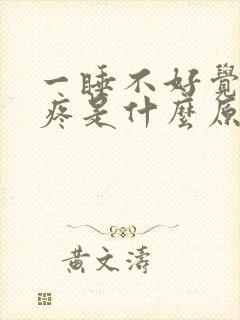 一睡不好覺
疼是什麼原
黃文濤